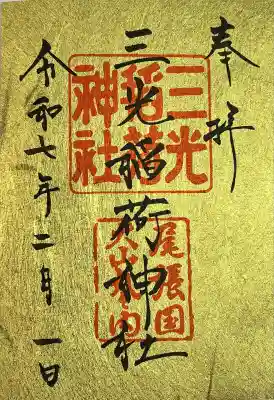 奉拝
三光稲荷神社
令和七年二月一日
三光
稲荷
神社
尾張国